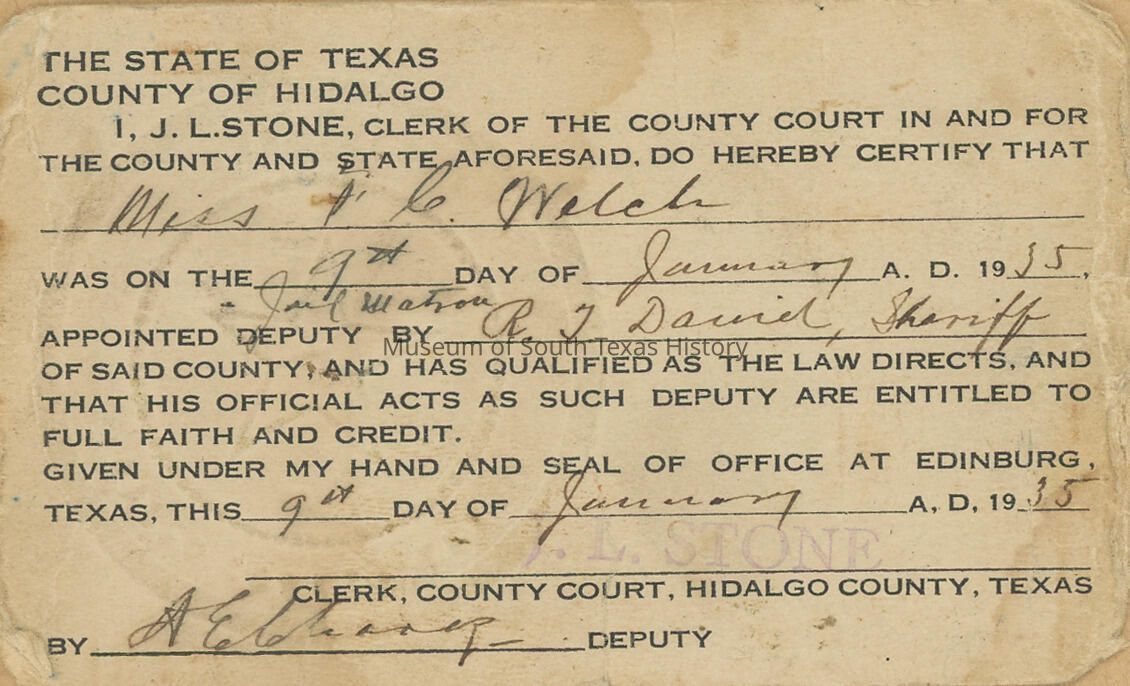 THE STATE OF TEXAS
COUNTY OF HIDALGO
I, J. L. STONE, CLERK OF THE COUNTY COURT IN AND FOR
THE COUNTY AND STATE AFORESAID, DO HEREBY CERTIFY THAT
Miss C. Welch
WAS ON THE 9th DAY OF January A. D. 1935,
Jail Matron
APPOINTED DEPUTY BY R. T David, Sheriff
Museum of South Texas History
OF SAID COUNTY, AND HAS QUALIFIED AS THE LAW DIRECTS, AND
THAT HIS OFFICIAL ACTS AS SUCH DEPUTY ARE ENTITLED TO
FULL FAITH AND CREDIT.
GIVEN UNDER MY HAND AND SEAL OF OFFICE AT EDINBURG,
TEXAS, THIS 9th DAY OF January A, D, 1935
J. L. STONE
CLERK, COUNTY COURT, HIDALGO COUNTY, TEXAS
BY A E Chavez DEPUTY